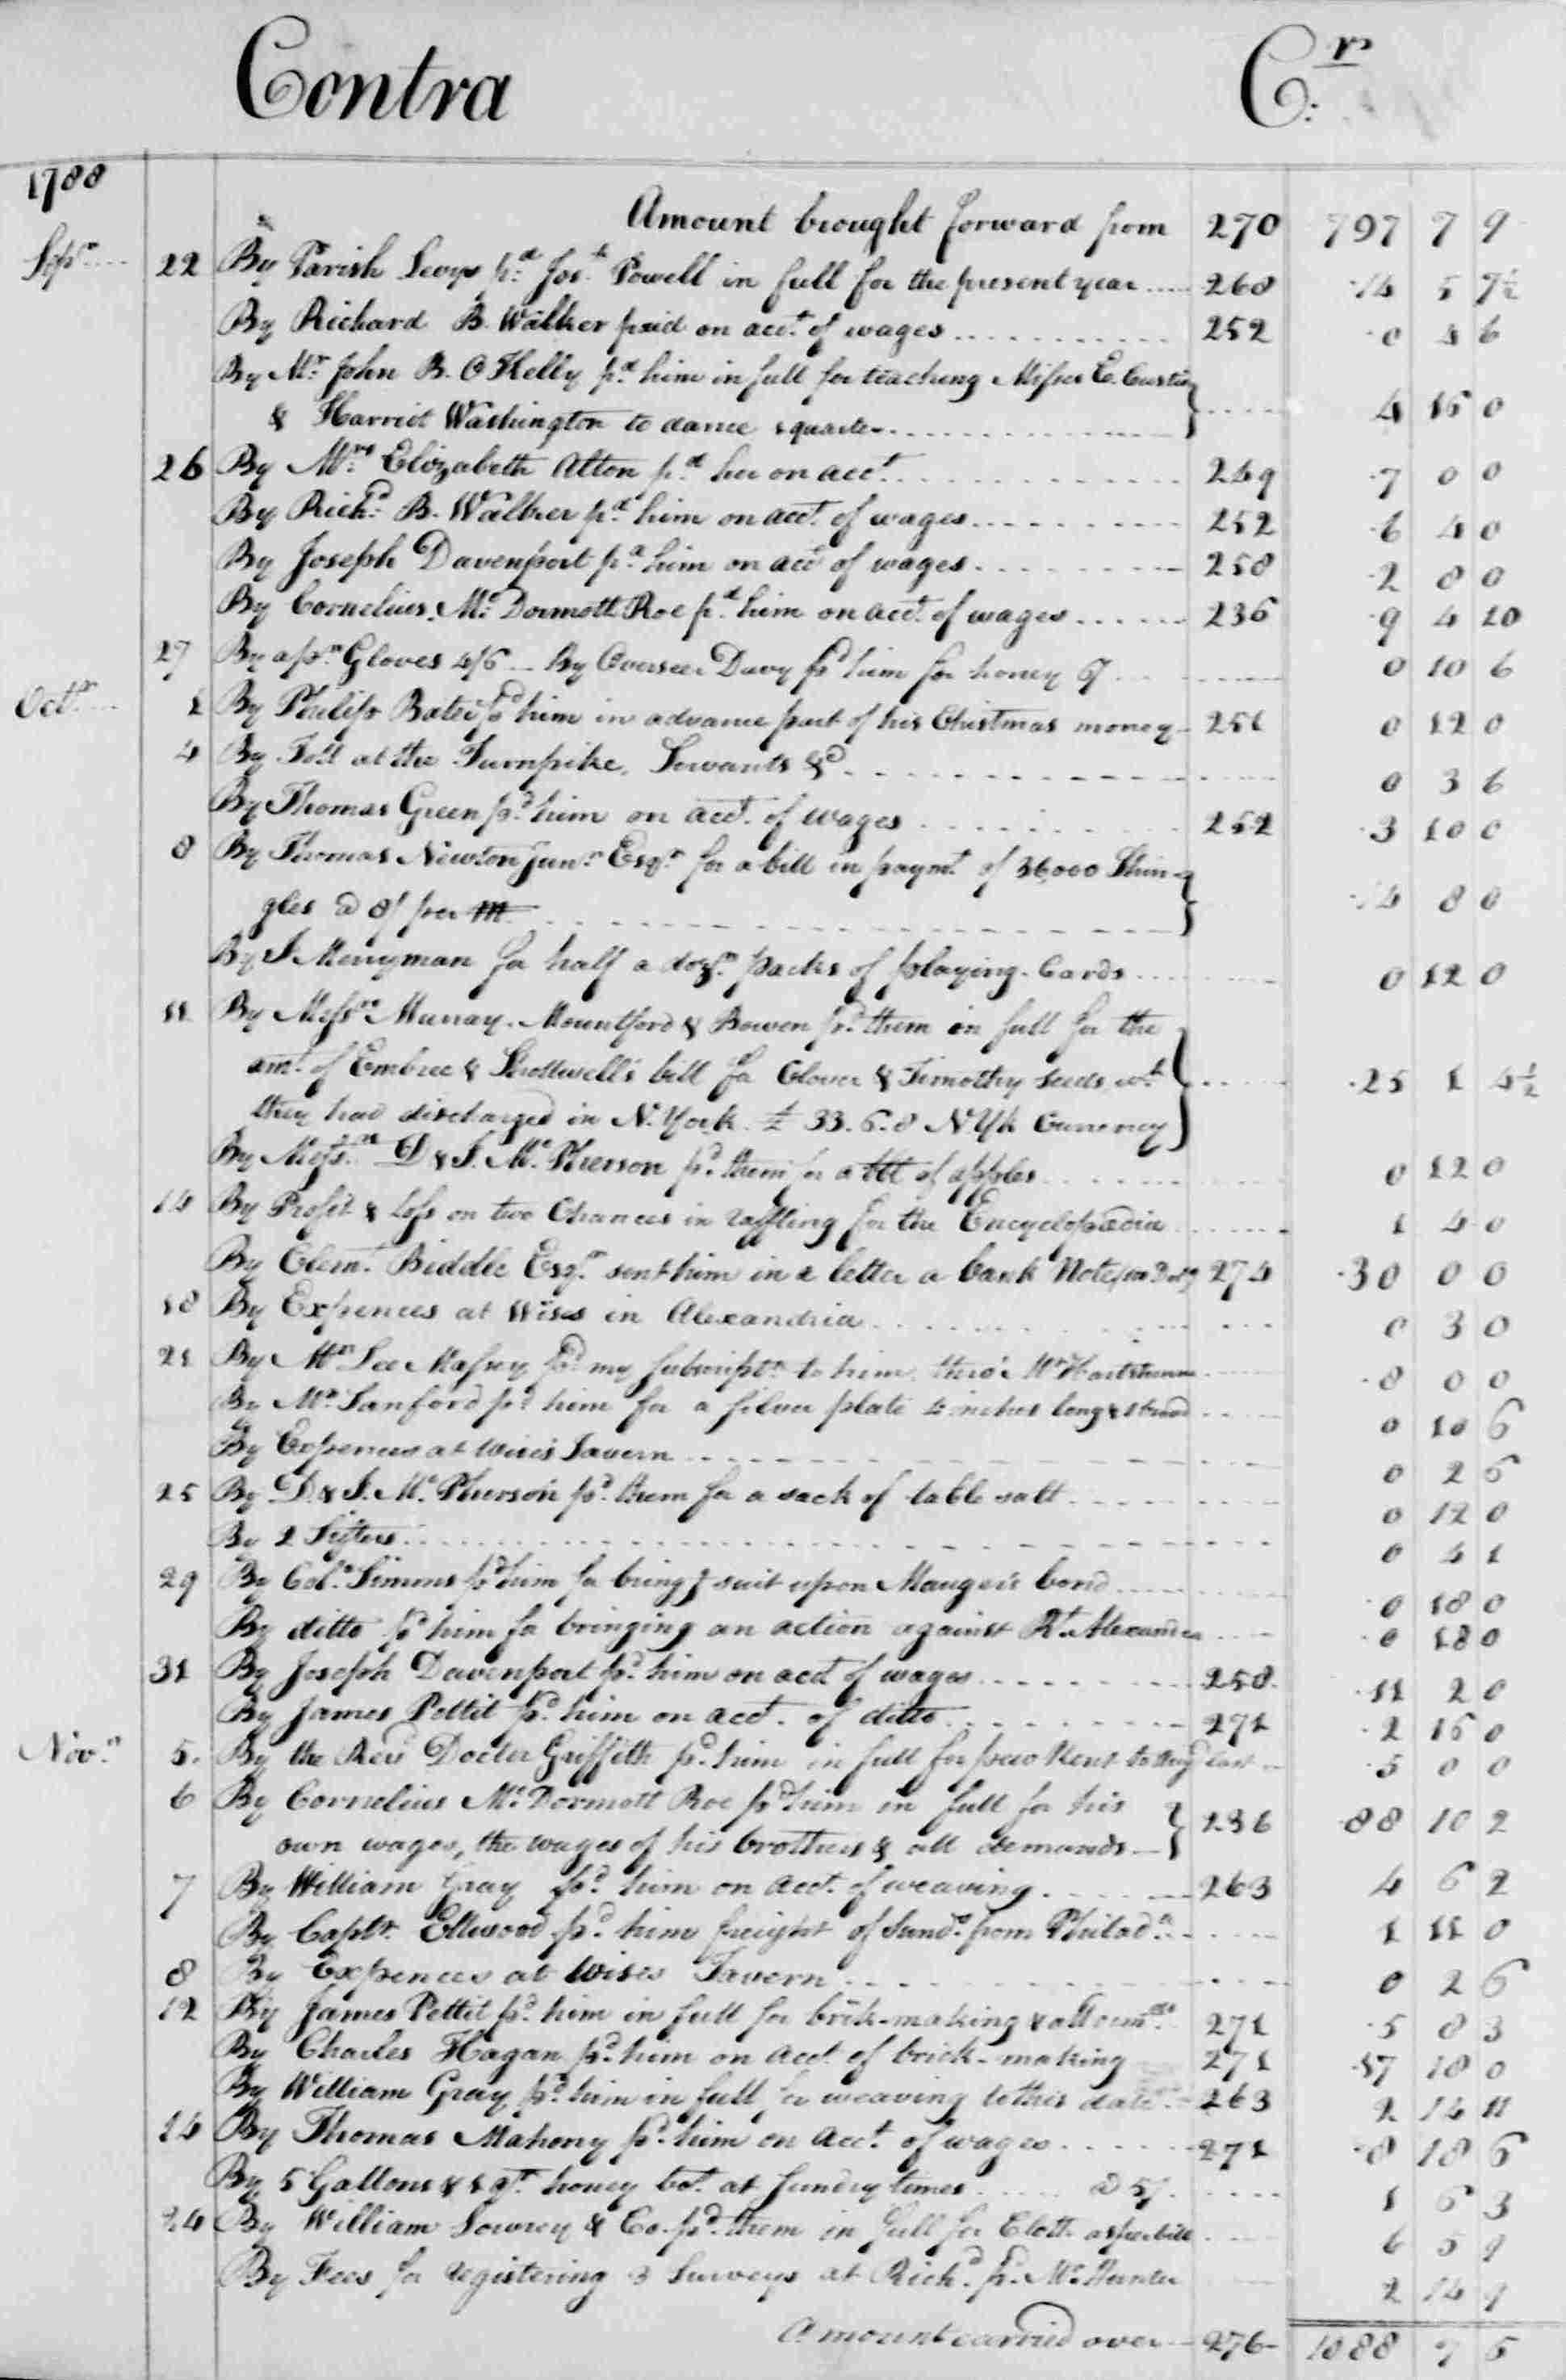 Contra Cr.
1788
Amount brought forward from 270 797 7 9
Sepr. 22 By Parish Levys pd. Jos.h Powell in full for the present year 268 14 5 7½
By Richard B. Walker paid on acct. of wages 252 0 4 6
By Mr. John B. O Kelly pd. him in full for teaching Misses E. Custis
& Harriot Washington to dance 1 quarter 4 16 0
26 By Mrs. Elizabeth Alton pd. her on acct. 249 7 0 0
By Richd. B. Walker pd. him on acct. of wages 252 6 4 0
By Joseph Davenport pd. him on acct of wages 258 2 8 0
By Cornelius Mc. Dermott Roe pd. him on acct. of wages 236 9 4 10
27 By a pr. Gloves 4/6 – By Overseer Davy pd. him for honey 6/ 0 10 6
Octr. 1 By Philip Bater pd him in advance part of his Christmas money 251 0 12 0
4 By Toll at the Turnpike, Servants &c. 0 3 6
By Thomas Green pd. him on acct. of wages 252 3 10 0
8 By Thomas Newton Junr. Esqr. for a bill in paymt. of 36,000 Shin-
gles @ 8/ per M 14 8 0
By J. Merryman for half a dozn. packs of playing-Cards 0 12 0
11 By Messrs. Murray, Mountford & Bowen pd. them in full for the
amt. of Embree & Shotwell's bill for Clover & Timothy seeds wh.
they had discharged in N. York. £ 33.6.8 N Yk Currency 25 1 4½
By Messrs. D & J. Mc. Pherson pd. them for a bbl of apples 0 12 0
14 By Profit & Loss on two Chances in raffling for the Encyclopædia 1 4 0
By Clemt. Biddle Esqr. sent him in a letter a bank Note 274 30 0 0
18 By Expences at Wises in Alexandria 0 3 0
21 By Mr. Lee Massey pd. my subscriptn. to him thro' Mr Hartshorne 8 0 0
By Mr. Sanford pd. him for a silver plate 4 inches long & broad 0 10 6
By Expences at Wise's Tavern 0 2 6
25 By D. & J. Mc. Pherson pd. them for a sack of table salt 0 12 0
By 2 Sifters 0 4 1
29 By Colo. Simms pd him for bringg suit upon Mauger's bond 0 18 0
By ditto pd him for bringing an action against Rt. Alexander 0 18 0
31 By Joseph Davenport pd. him on acct of wages 258 11 2 0
By James Pettit pd. him on acct. of ditto 271 2 16 0
Novr. 5. By the Revd Doctor Griffith pd. him in full for pew Rent to Augt last 5 0 0
6 By Cornelius Mc. Dermott Roe pd him in full for his
own wages, the wages of his brothers & all demands 236 88 10 2
7 By William Gray pd. him on acct. of weaving 263 4 6 2
By Captn. Ellwood pd. him freight of Sunds. from Philada. 1 11 0
8 By Expences at Wises Tavern 0 2 6
12 By James Pettit pd. him in full for brick-making & all 271 5 8 3
By Charles Hagan pd. him on acct. of brick-making 271 17 18 0
By William Gray pd. him in full for weaving to this date 263 2 14 11
14 By Thomas Mahony pd. him on acct. of wages 271 8 18 6
By 5 Gallons & 1 qt. honey bot. at sundry times @ 5/ 1 6 3
24 By William Lowrey & Co. pd. them in full for Cloth as per bill 6 5 9
By Fees for registering 3 Surveys at Richd. pr. Mr. Hunter 2 14 9
Amount carried over 276 1088 7 5